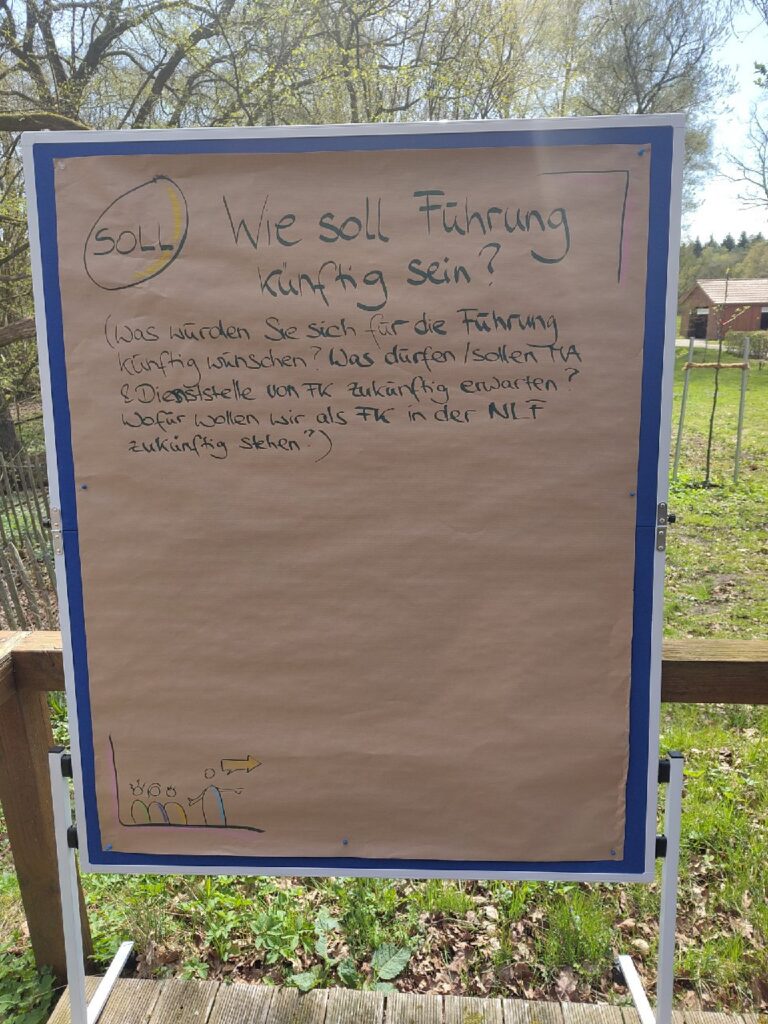 SOLL
Wie soll Führung
künftig sein?
(Was würden Sie sich für die Führung
künftig wünschen? Was dürfen/sollen MA
& Dienststelle von FK zukünftig erwarten?
Wofür wollen wir als FK in der NLF
zukünftig stehen?)